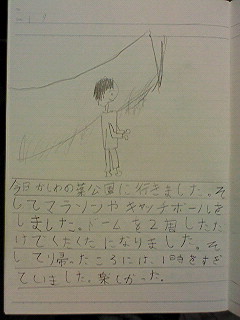 今日かしわの葉公園に行きました。そ
してマラソンやキャッチボールを
しました。ドームを2周しただ
けでくたくたになりました。そ
して帰ったころには、1時をすぎ
ていました。楽しかった。